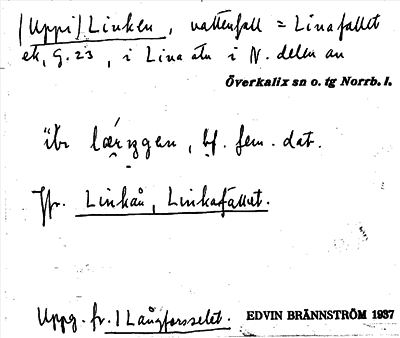 (Uppi) Linken, vattenfall = Linafallet
ek, G. 23, i Lina älv i N. delen av
Överkalix sn o. tg Norrb. l.
bf. fem. dat.
Jfr. Linkån, Linkafallet.
Uppg. fr. Långforsselet. EDVIN BRÄNNSTRÖM 1937